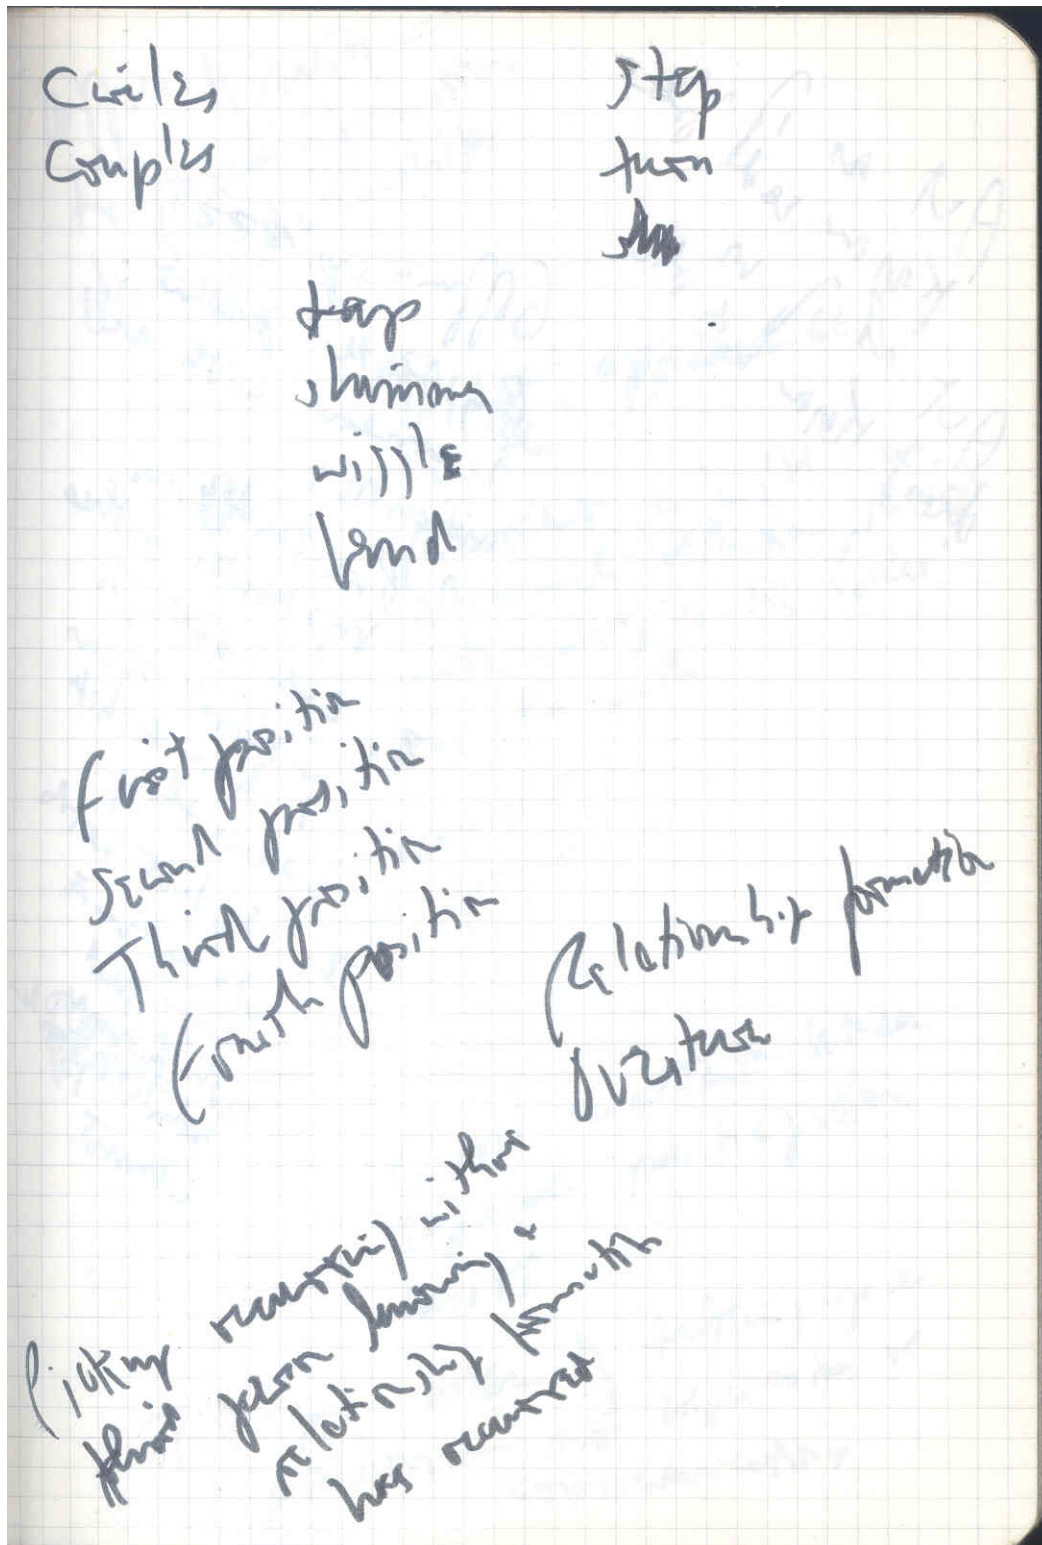 Circles
Couples
step
turn
tap
shimmy
wiggle
bend
First position
Second position
Third position
Fourth position
Relationship formation
overture
Pickup occurring without
third person knowing a
relationship formation
has occurred